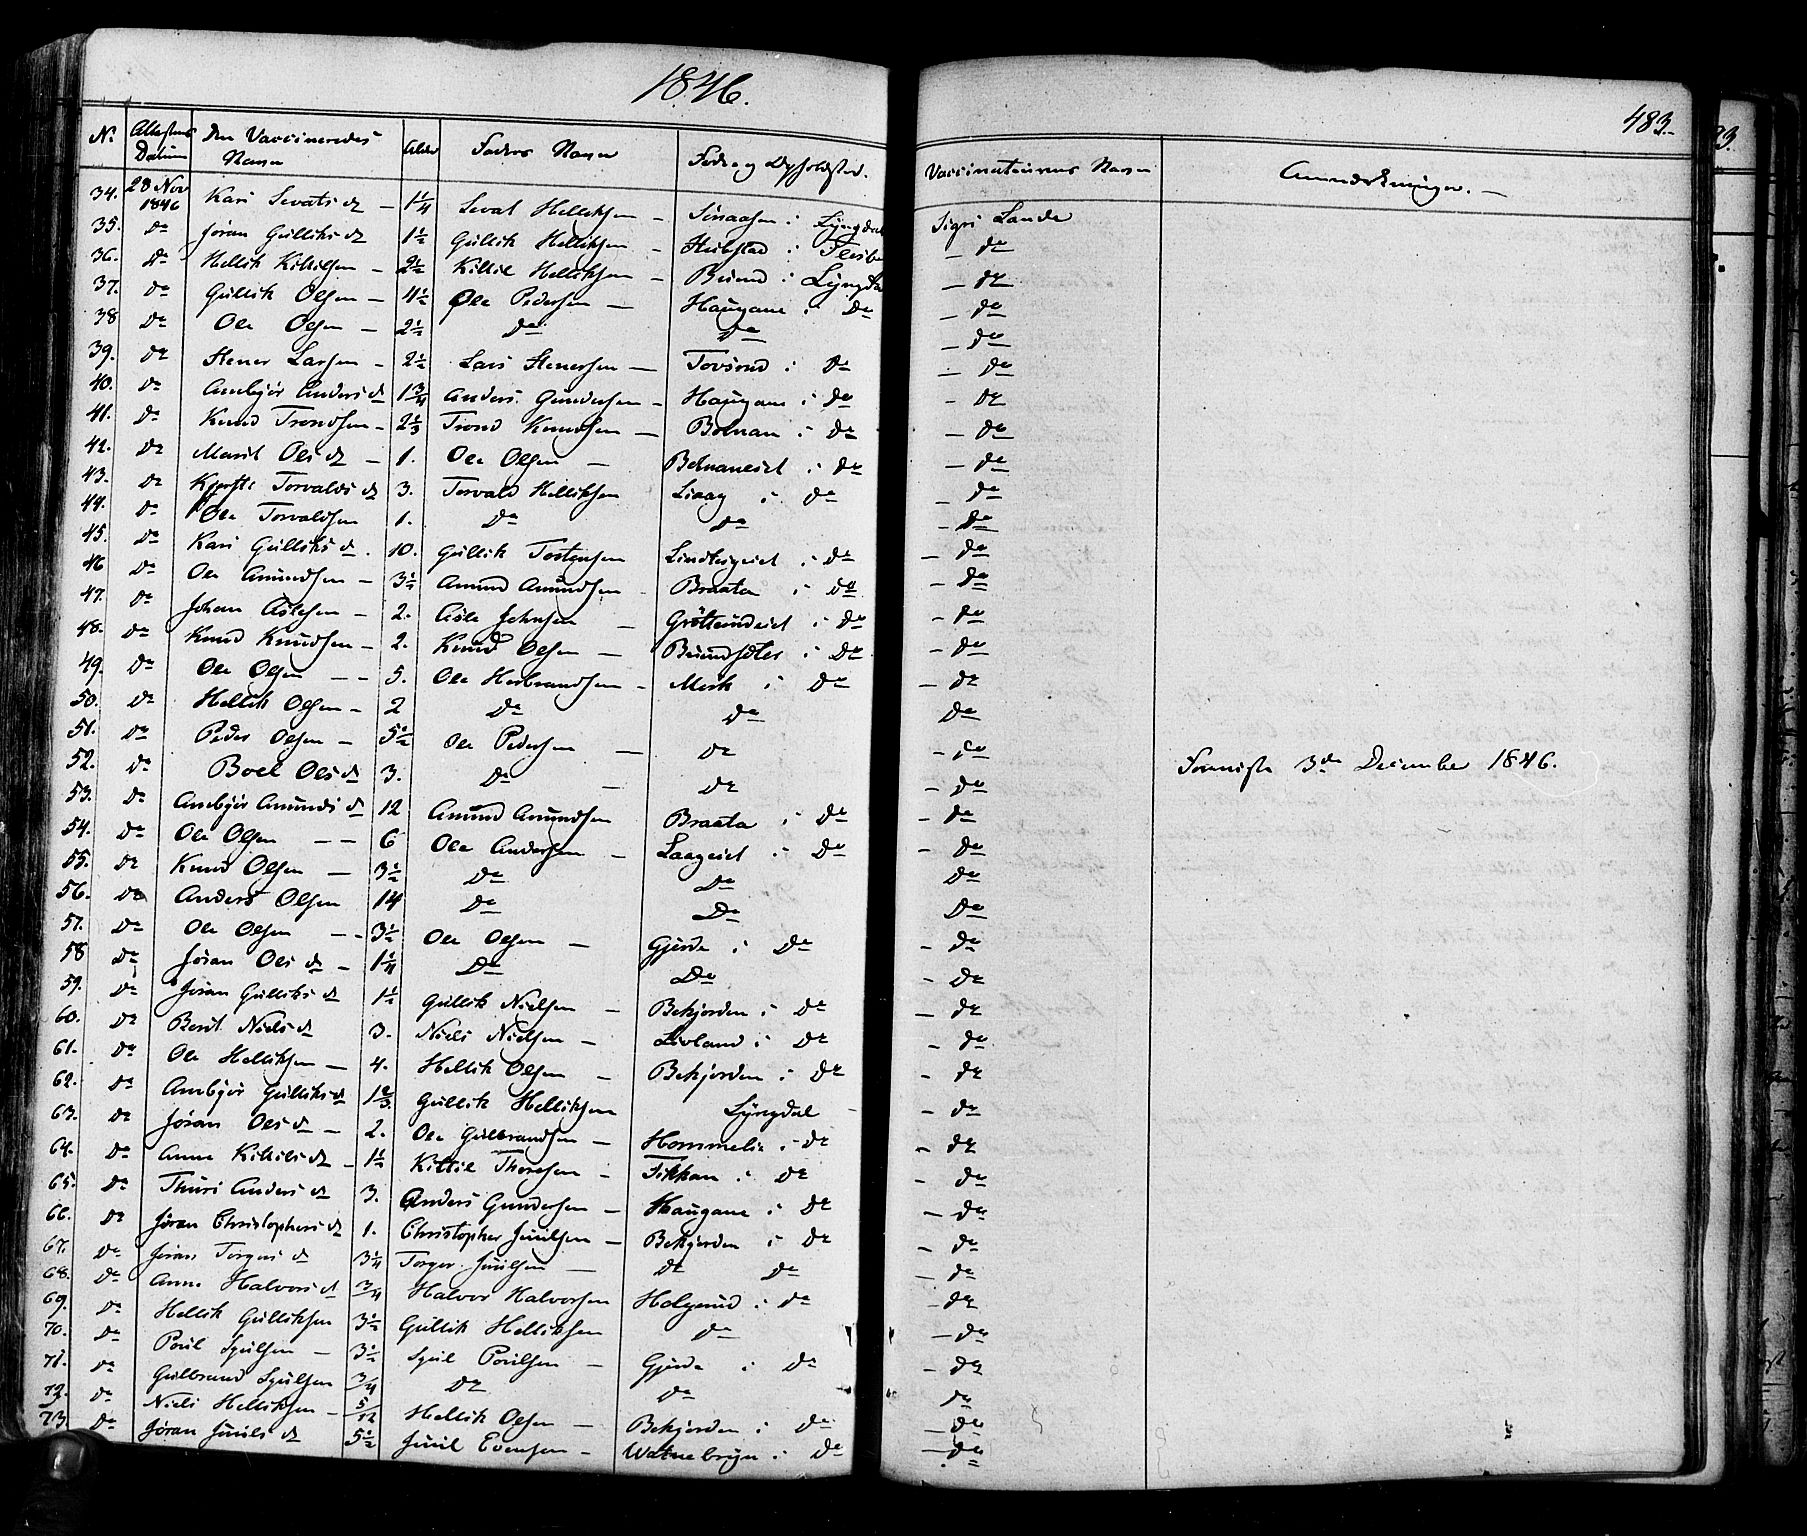 1846.
483.
N. Attestens Datum Den Vaccineredes Navn Alder Faders Navn Føde og Opholdsted. Vaccinateurens Navn Anmærkninger. —
34. 28 Nov 1846 Kari Sevats d — 1 1/4 Sevat Helliksen — i Lyngdal Sigri Lande
35. Do Jøran Gulliks d 1 1/2 Gullik Helliksen — i Flesb — do
36. Do Hellik Kittilsen — 2 1/2 Kittil Helliksen — i Lyngdal — do
37. Do Gullik Olsen — 4 1/2 Ole Pedersen — Haugane i Do — do
38 Do Ole Olsen — 2 1/2 Do Do — do
39. Do Stener Larsen — 2 1/2 Lars Stenersen — i Do — do
40. Do Ambjør Anders d 1 3/4 Anders Gundersen — Haugane i Do — do
41. Do Knud Trondsen — 2 1/3 Trond Knudsen — Botnan i Do — do
42. Do Marit Ols d — 1. Ole Olsen — Botnaneiet i Do — do
43. Do Kjersti Torvalds d 3. Torvald Helliksen Liaag i Do — do
44. Do Ole Torvaldsen 1. Do Do — do
45. Do Kari Gulliks d. 10. Gullik Tostensen i Do — do
46 Do Ole Amundsen — 3 1/2 Amund Amundsen Braata i Do — do
47. Do Johan Aslesen — 2. Asle Johnsen — i Do — do
48. Do Knud Knudsen — 2. Knud Olsen — i Do — do
49. Do Ole Olsen — — 5. Ole Herbrandsen — Mork i Do — do
50. Do Hellik Olsen — 2 Do Do do
51. Do Peder Olsen — 5 1/2 Ole Pedersen — Do — do
52. Do Boel Ols d 3. Do — Do — do 3de December 1846.
53. Do Ambjør Amunds d 12 Amund Amundsen Braata i Do — do
54. Do Ole Olsen — — 6 Ole Andersen — Laageiet i Do — do
55. Do Knud Olsen — 3 1/2 Do Do do
56. Do Anders Olsen 14 Do Do do
57. Do Ole Olsen — — 3 1/2 Ole Olsen — Gjerde i Do — do
58 Do Jøran Ols d — 1 1/4 Do Do — do
59. Do Jøran Gulliks d 1 1/2 Gullik Nielsen — Bekjorden i Do — do
60. Do Berit Niels d 3. Niels Nielsen — Livland i Do — do
61. Do Ole Helliksen — 4. Hellik Olsen — Bekjorden i Do — do
62. Do Ambjør Gulliks d 1 2/3 Gullik Helliksen Lyngdal — — do
63. Do Jøran Ols d — 2. Ole Gulbrandsen — Hommelie i Do — do
64. Do Anne Kittils d — 1 1/2 Kittil Thoresen — Fikkan i Do — do
65. Do Thuri Anders d 3. Anders Gundersen — Haugane i Do — do
66. Do Jøran Christophers d 1. Christopher Juulsen — Bekjorden i Do — do
67. Do Jøran Torgers d 3 1/4 Torger Juulsen — Do Do — do
68. Do Anne Halvors d 3/4 Halvor Halvorsen i Do — do
69. Do Hellik Gulliksen 3 1/2 Gullik Helliksen Do — do
70. Do Poul Sjulsen — 3 1/2 Sjul Poulsen — Gjerde i Do — do
71. Do Gulbrand Sjulsen 3/4 Do Do do
72. Do Niels Helliksen — 5/12 Hellik Olsen — Bekjorden i Do — do
73. Do Jøran Juuls d 5 1/2 Juul Evensen — Watnebryn i Do — do